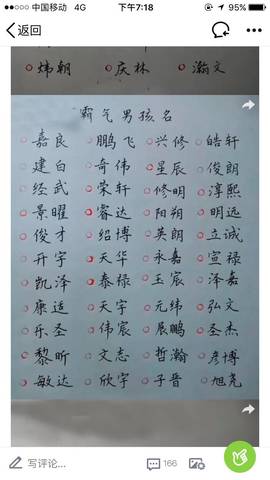 中国移动 4G 下午7:18
返回
炜朝 庆林 瀚文
霸气男孩名
嘉良 鹏飞 兴修 皓轩
建白 奇伟 星辰 俊朗
经武 荣轩 修明 淳熙
景曜 睿达 阳朔 明远
俊才 绍博 英朗 立诚
升宇 天华 永嘉 宣禄
凯泽 泰禄 玉宸 泽嘉
康适 天宇 元纬 弘文
乐圣 伟宸 展鹏 圣杰
黎昕 文志 哲瀚 彦博
敏达 欣宇 子晋 旭尧
写评论... 166